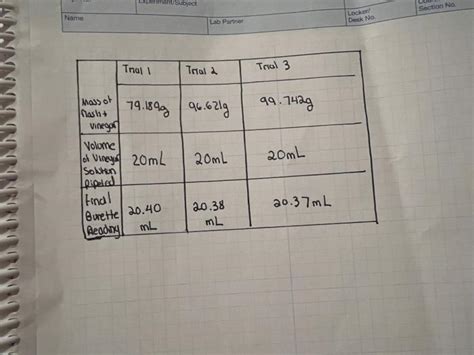 Experiment/Subject
Name
Lab Partner
Locker/
Desk No.
Section No.
Trial 1 Trial 2 Trial 3
Mass of
flask +
vinegar
79.189g 96.621g 99.742g
Volume
of Vinegar
Solution
pipeted
20mL 20mL 20mL
Final
Burette
Reading
20.40
mL
20.38
mL
20.37mL